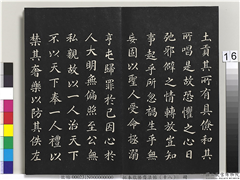 土貢其所有具僚和其
所唱是故恐懼之心日
弛邪僻之情轉放豈知
事起乎所忽禍生乎無
妄固以聖人受命拯溺
亨屯歸罪於己因心於
人大明無偏照至公無
私親故以一人治天下
不以天下奉一人禮以
禁其奢樂以防其佚左
16